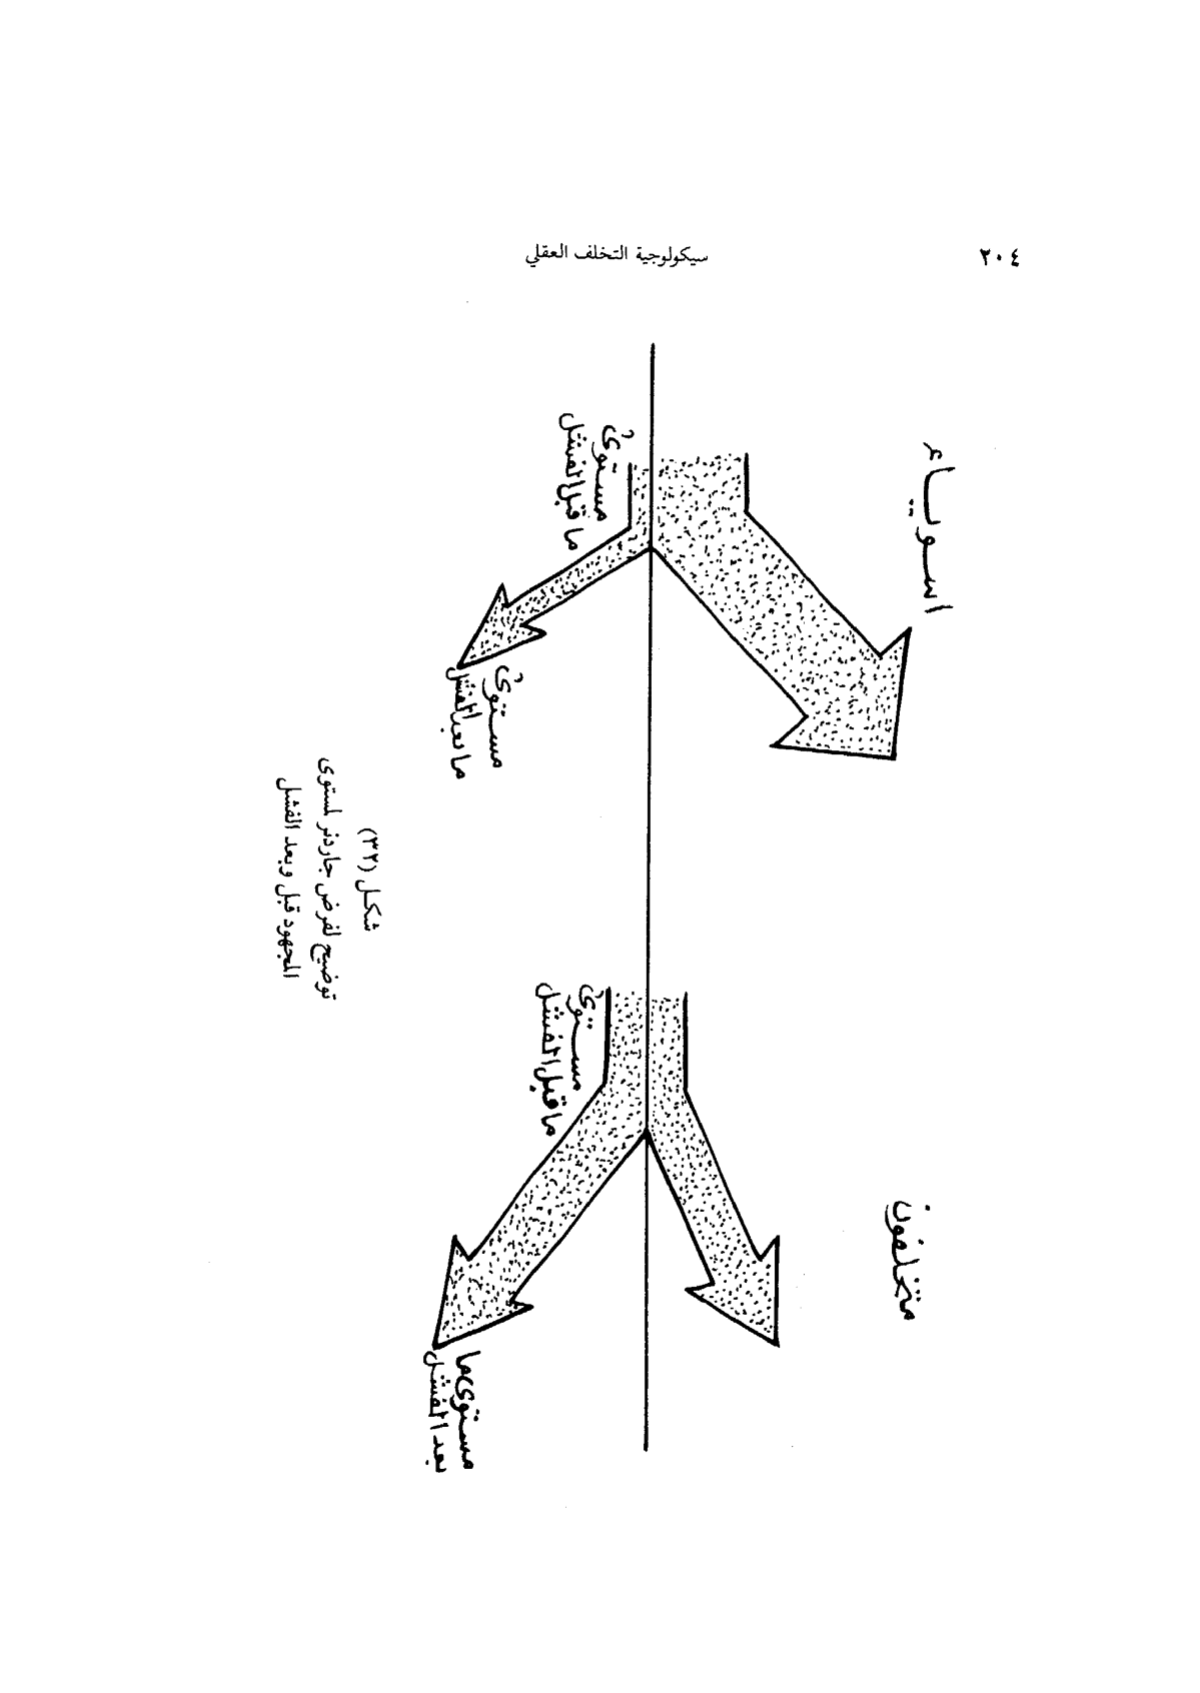 ٢٠٤
سيكولوجية التخلف العقلي
اسوياء
مستوى
ما قبل الفشل
مستوى
ما بعد الفشل
متخلفون
مستوى
ما قبل الفشل
مستوى ما
بعد الفشل
شكل (٣٢)
توضيح لفرض جاردنر لمستوى
المجهود قبل وبعد الفشل